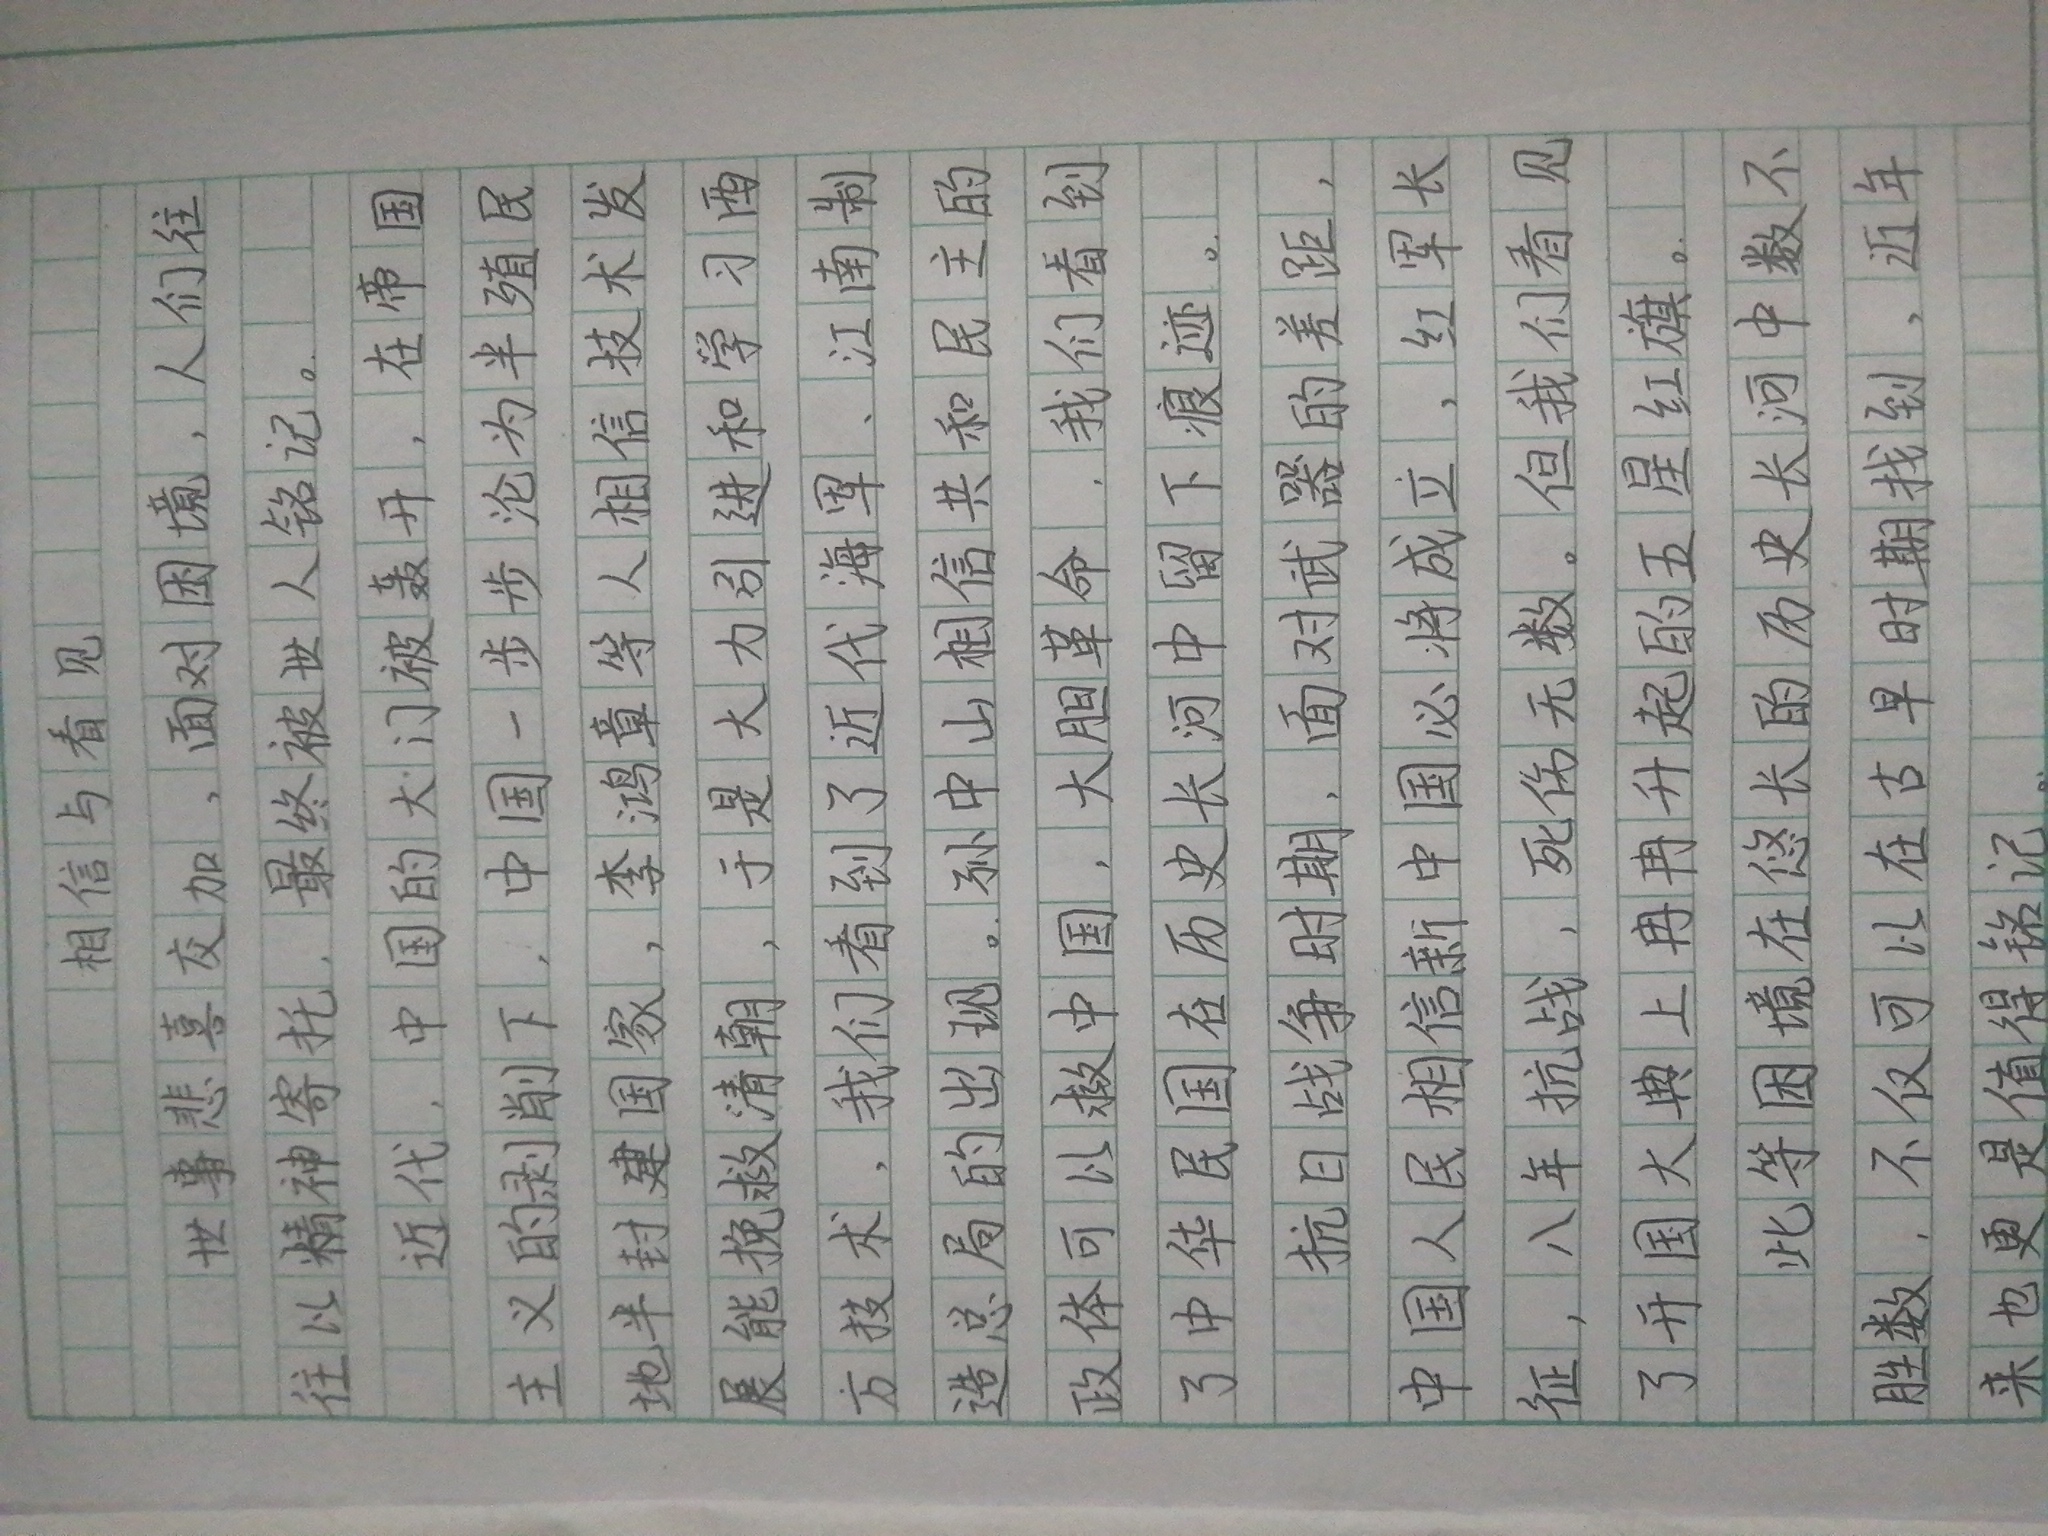 相信与看见
世事悲喜交加，面对困境，人们往
往以精神寄托，最终被世人铭记。
近代，中国的大门被轰开，在帝国
主义的剥削下，中国一步步沦为半殖民
地半封建国家，李鸿章等人相信技术发
展能挽救清朝，于是大力引进和学习西
方技术，我们看到了近代海军、江南制
造总局的出现。孙中山相信共和民主的
政体可以救中国，大胆革命，我们看到
了中华民国在历史长河中留下痕迹。
抗日战争时期，面对武器的差距，
中国人民相信新中国必将成立，红军长
征，八年抗战，死伤无数。但我们看见
了开国大典上冉冉升起的五星红旗。
此等困境在悠长的历史长河中数不
胜数，不仅可以在古早时期找到，近年
来也更是值得铭记。